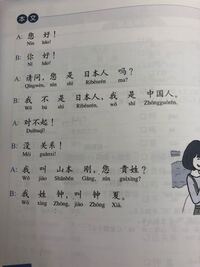 本 文
A: 您 好!
Nín hǎo!
B: 你 好!
Nǐ hǎo!
A: 请问,您 是 日本人 吗?
Qǐngwèn, nín shì Rìběnrén ma?
B: 我 不 是 日本人,我 是 中国人。
Wǒ bú shì Rìběnrén, wǒ shì Zhōngguórén.
A: 对不起!
Duìbuqǐ!
B: 没 关系!
Méi guānxi!
A: 我 叫 山本 刚,您 贵姓?
Wǒ jiào Shānběn Gāng, nín guìxìng?
B: 我 姓 钟,叫 钟 夏。
Wǒ xìng Zhōng, jiào Zhōng Xià.